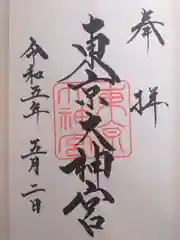 奉拝
東京大神宮
東京
大神宮
令和五年 五月二日